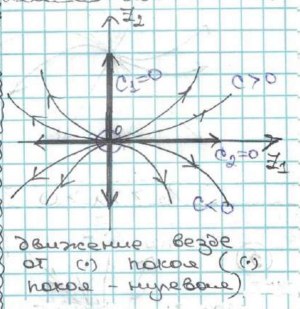 z₂
C₁=0
C>0
0
C₂=0
z₁
C<0
движение везде
от (•) покоя ( (•)
покоя - нулевая)